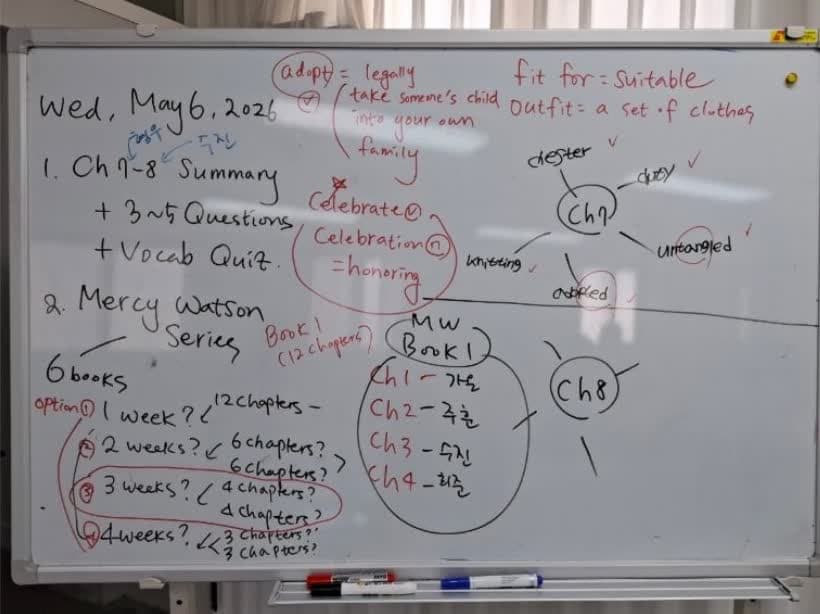 adopt = legally
ⓥ take someone's child
into your own
family
fit for = suitable
outfit = a set of clothes
Wed, May 6, 2026
수진
1. Ch 7-8 Summary
+ 3~5 Questions
+ Vocab Quiz.
Celebrate ⓥ
Celebration ⓝ
= honoring
Ch7
duty
untangled
knitting
2. Mercy Watson
Series
Book 1
(12 chapters)
6 books
option ① 1 week? 12 chapters
② 2 weeks? 6 chapters?
6 chapters?
③ 3 weeks? 4 chapters?
4 chapters?
④ 4 weeks? 3 chapters?
3 chapters?
MW
Book 1
Ch1 -
Ch2 - 주훈
Ch3 - 수진
Ch4 - 희준
Ch8